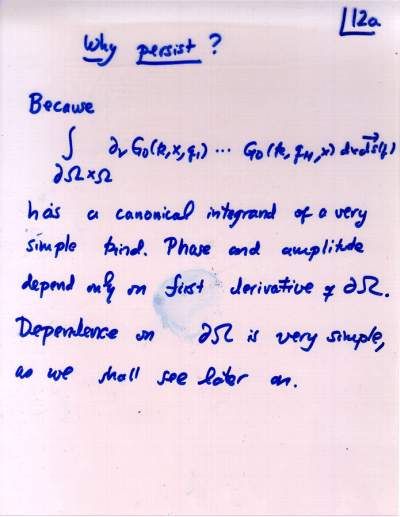 12a
Why persist?
Because
∫ ∂ν G₀(k,x,q₁) ··· G₀(k,q_M,x) dx ds(q)
∂Ω×Ω
has a canonical integrand of a very
simple kind. Phase and amplitude
depend only on first derivative of ∂Ω.
Dependence on ∂Ω is very simple,
as we shall see later on.